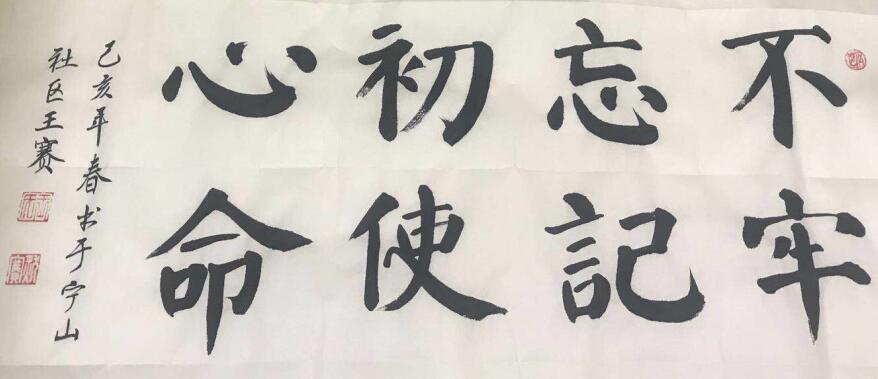 不忘初心
牢記使命
己亥年春书于宁山
社区王赛